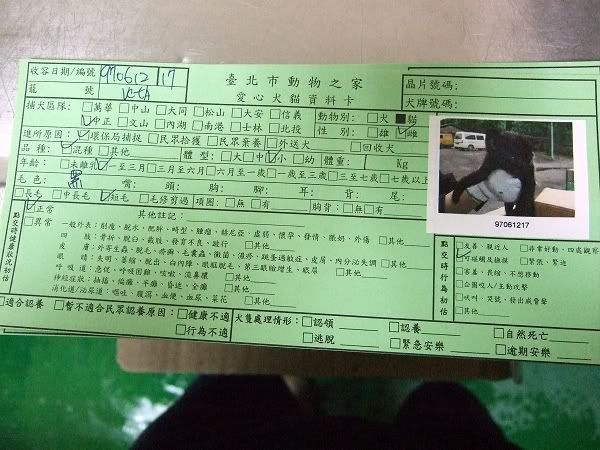 收容日期/編號 970612 17
臺北市動物之家
晶片號碼：
籠 號 VC-CA
愛心犬貓資料卡
犬牌號碼：
捕犬區隊：□萬華□中山□大同□松山□大安□信義 動物別：□犬■貓
☑中正□文山□內湖□南港□士林□北投 性別：□雄☑雌
進所原因：☑環保局捕捉□民眾拾獲□民眾棄養□外送犬 □回收犬
品種：☑混種□其他 體型：□大□中☑小□幼 體重： Kg
年齡：□未離乳☑一至三月□三月至六月□六月至一歲□一歲至三歲□三至七歲□七歲以上
毛色：黑 嘴： 頭： 胸： 腳： 耳： 背： 尾：
□長毛□中長毛☑短毛□毛修剪過 項圈：□無□有 胸背：□無□有
97061217
點交時健康狀況初估
☑正常 其他註記：
□異常
一般外表：削瘦、脫水、肥胖、畸型、腫瘤、赫尼亞、虛弱、懷孕、發情、腰奶、外傷 □其他
四 肢：骨折、脫臼、截肢、發育不良、跛行 □其他
皮 膚：外寄生蟲、脫毛、疥癬、毛囊蟲、黴菌、濕疹、跳蚤過敏症、皮屑、內分泌失調 □其他
眼 睛：失明、萎縮、脫出、白內障、眼眶脫毛、第三眼瞼增生、眼屎 □其他
呼吸道：急促、呼吸困難、咳嗽、流鼻膿 □其他
神經症狀：抽搐、偏癱、半癱、昏迷、全癱 □其他
消化道/泌尿道：嘔吐、腹瀉、血便、血尿、菜花 □其他
點交時行為初估
□友善、親近人 □非常好動、四處觀察
☑可碰觸及撫摸 □緊張、緊迫
□害羞、畏縮、不想移動
□企圖咬人/主動攻擊
□吠叫、哭號、發出威脅聲
□其他
□適合認養 □暫不適合民眾認養原因：□健康不適
□行為不適
犬隻處理情形：□認領 □認養 □自然死亡
□逃脫 □緊急安樂 □逾期安樂